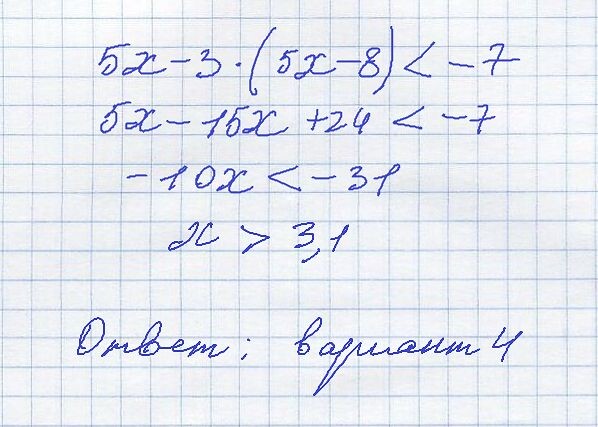 5x - 3 · (5x - 8) < -7
5x - 15x + 24 < -7
-10x < -31
x > 3,1
Ответ: вариант 4